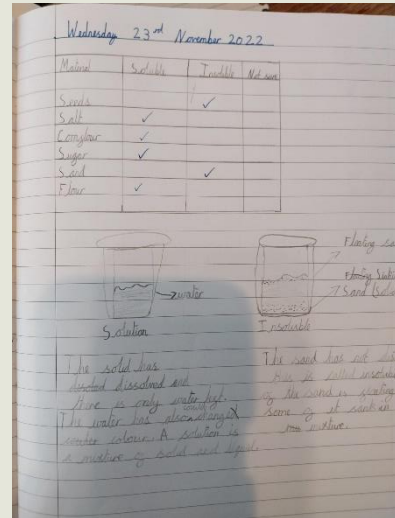 Wednesday 23rd November 2022
Material Soluble Insoluble Not sure
Seeds ✓
Salt ✓
Cornflour ✓
Sugar ✓
Sand ✓
Flour ✓
Floating
water
Sand
Solution
Insoluble
The solid has
dissolved and
there is only water left.
The water has also changed
colour. A solution is
a mixture of solid and liquid.
The sand has not
this is called
of the sand is floating
some of it sank in
mixture.